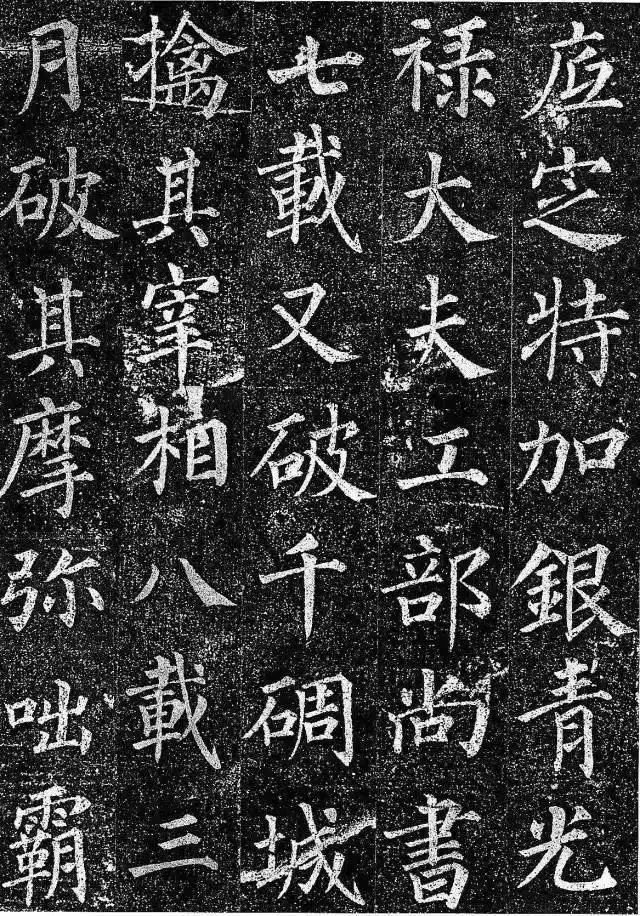 㡯定特加銀青光
禄大夫工部尚書
七載又破千碉城
擒其宰相八載三
月破其摩弥咄霸